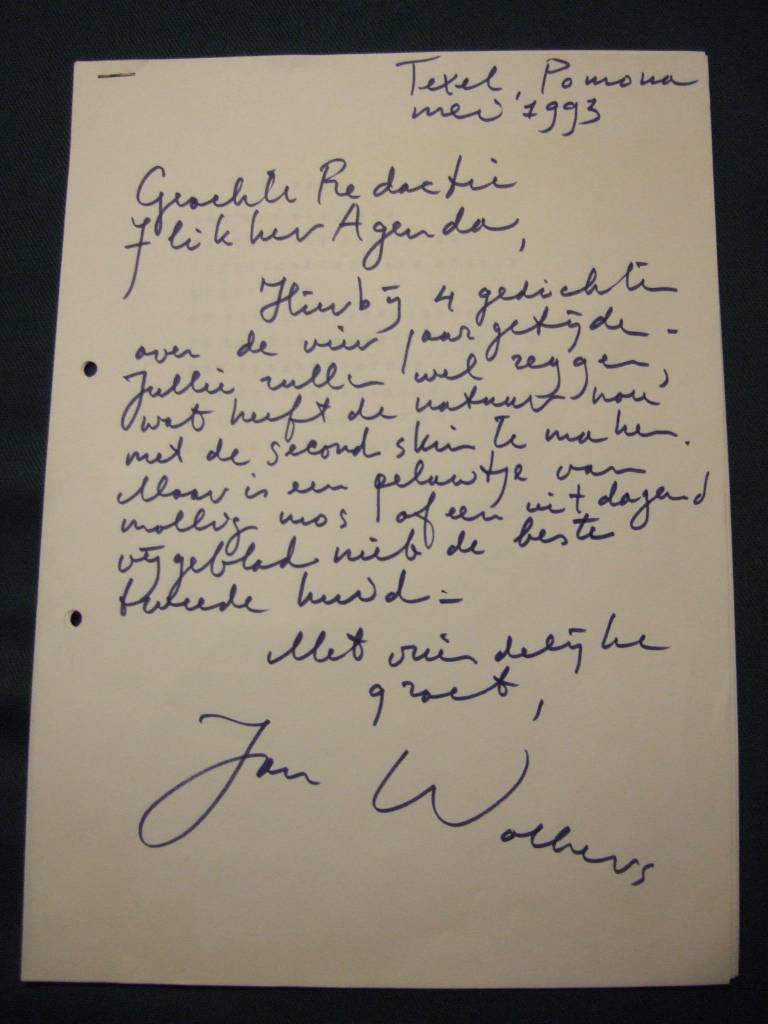 Texel, Pomona
mei 1993
Geachte Redactie
Flikker Agenda,
Hierbij 4 gedichten
over de vier jaargetijde-
Jullie zullen wel zeggen,
wat heeft de natuur nou
met de second skin te maken.
Maar is een pelautje van
mollig mos of een uitdagend
vijgeblad niet de beste
tweede huid-
Met vriendelijke
groet,
Jan Wolkers